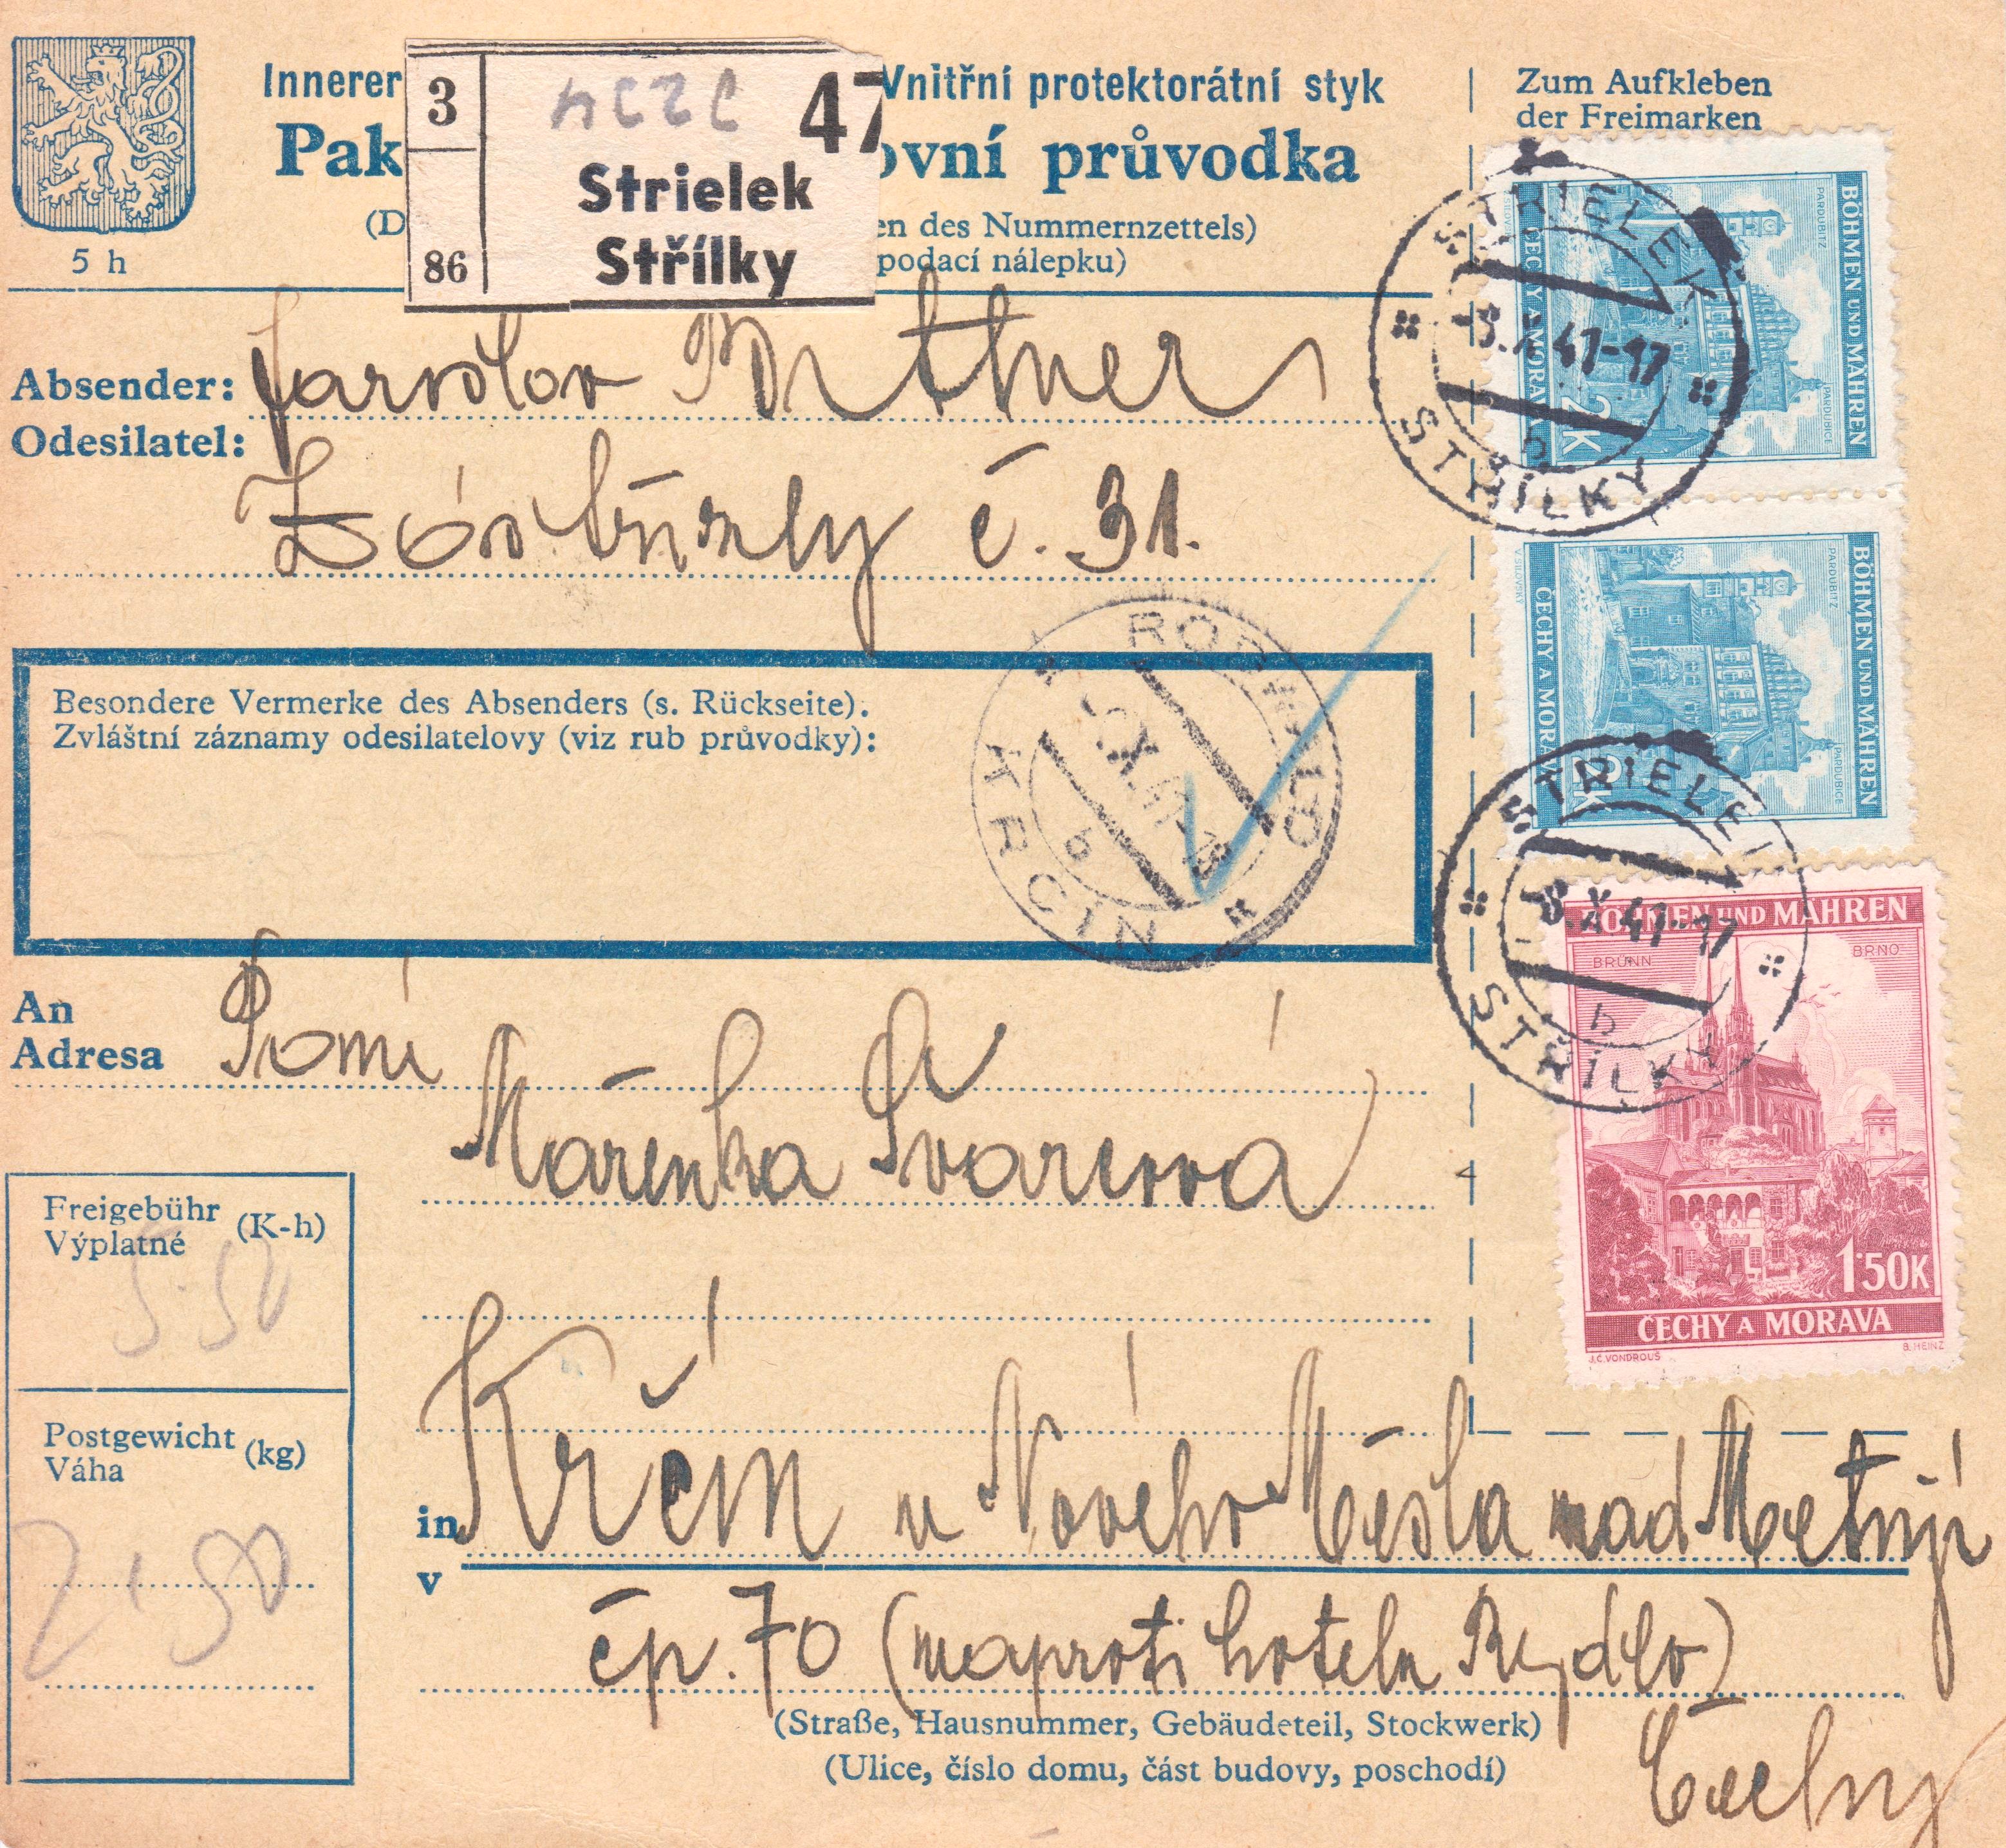 Innerer
Vnitřní protektorátní styk
Pak
ovní průvodka
(D
en des Nummernzettels)
podací nálepku)
5 h
3
47
Strielek
Střílky
86
Zum Aufkleben
der Freimarken
Absender:
Odesilatel:
Jaroslav
č. 31.
Besondere Vermerke des Absenders (s. Rückseite).
Zvláštní záznamy odesilatelovy (viz rub průvodky):
KRCIN
b
STRIELEK
8.X.41-17
b
STŘÍLKY
BÖHMEN UND MÄHREN
PARDUBITZ
PARDUBICE
ČECHY A MORAVA
2K
BÖHMEN UND MÄHREN
PARDUBITZ
PARDUBICE
ČECHY A MORAVA
STRIELEK
8.X.41-17
b
STŘÍLKY
BÖHMEN UND MÄHREN
BRÜNN
BRNO
1·50K
ČECHY A MORAVA
J.C. VONDROUŠ
B. HEINZ
An
Adresa
Paní
Mařenka
Freigebühr (K-h)
Výplatné
5·50
Postgewicht (kg)
Váha
2,50
in Krčín u Nového Města nad Metují
v
čp. 70 (naproti hotelu Rydlo)
(Straße, Hausnummer, Gebäudeteil, Stockwerk)
(Ulice, číslo domu, část budovy, poschodí)
Čechy